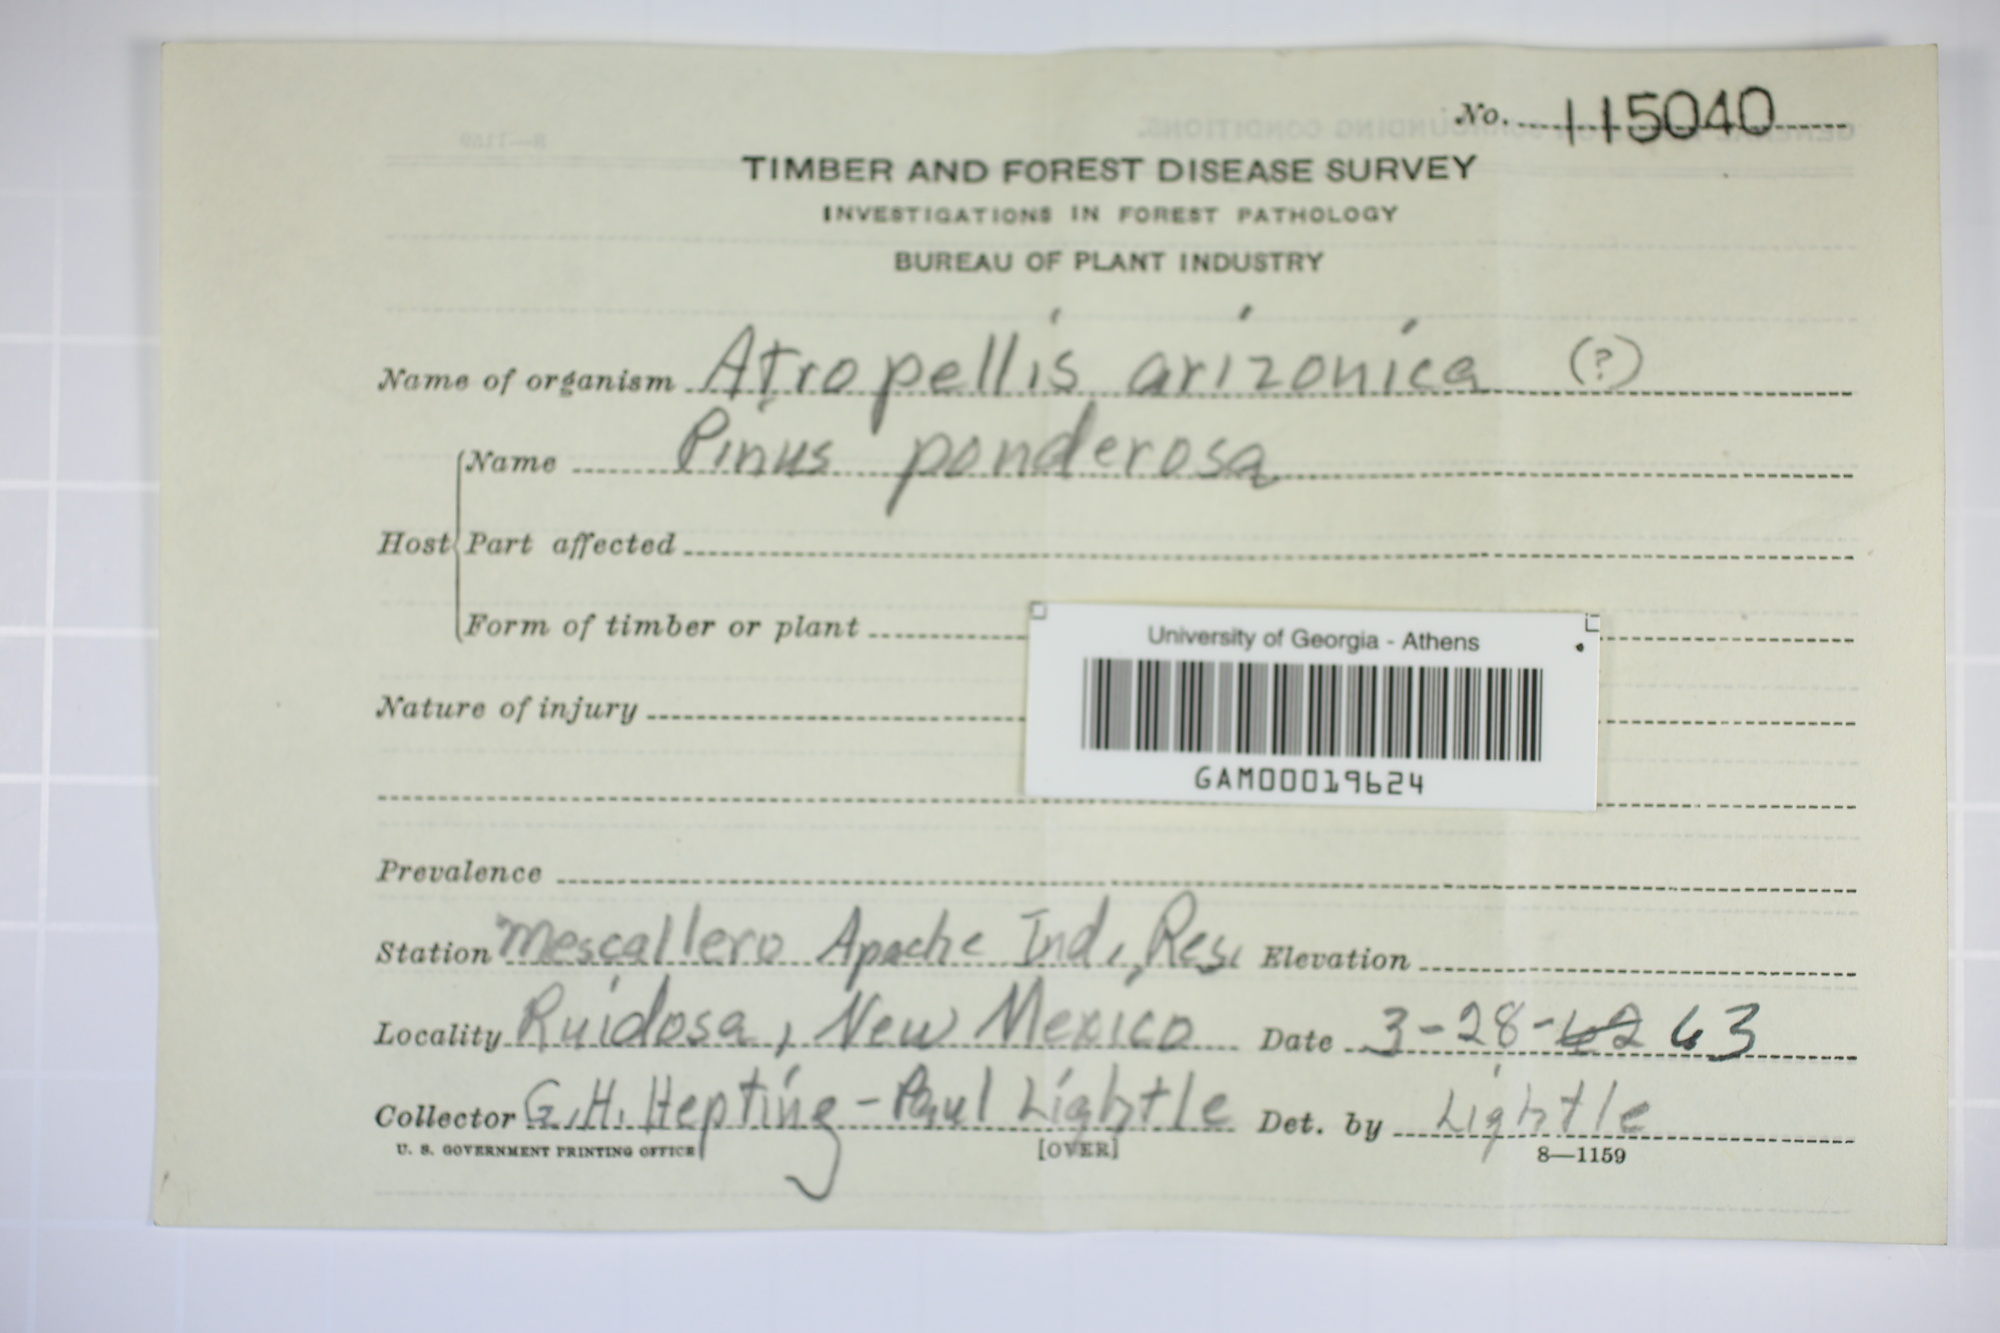 No. 115040
TIMBER AND FOREST DISEASE SURVEY
INVESTIGATIONS IN FOREST PATHOLOGY
BUREAU OF PLANT INDUSTRY
Name of organism Atropellis arizonica (?)
Name Pinus ponderosa
Host Part affected
Form of timber or plant
University of Georgia - Athens
GAM00019624
Nature of injury
Prevalence
Station Mescallero Apache Ind. Res. Elevation
Locality Ruidosa, New Mexico Date 3-28-62 63
Collector G.H. Hepting - Paul Lightle Det. by Lightle
U. S. GOVERNMENT PRINTING OFFICE [OVER] 8—1159